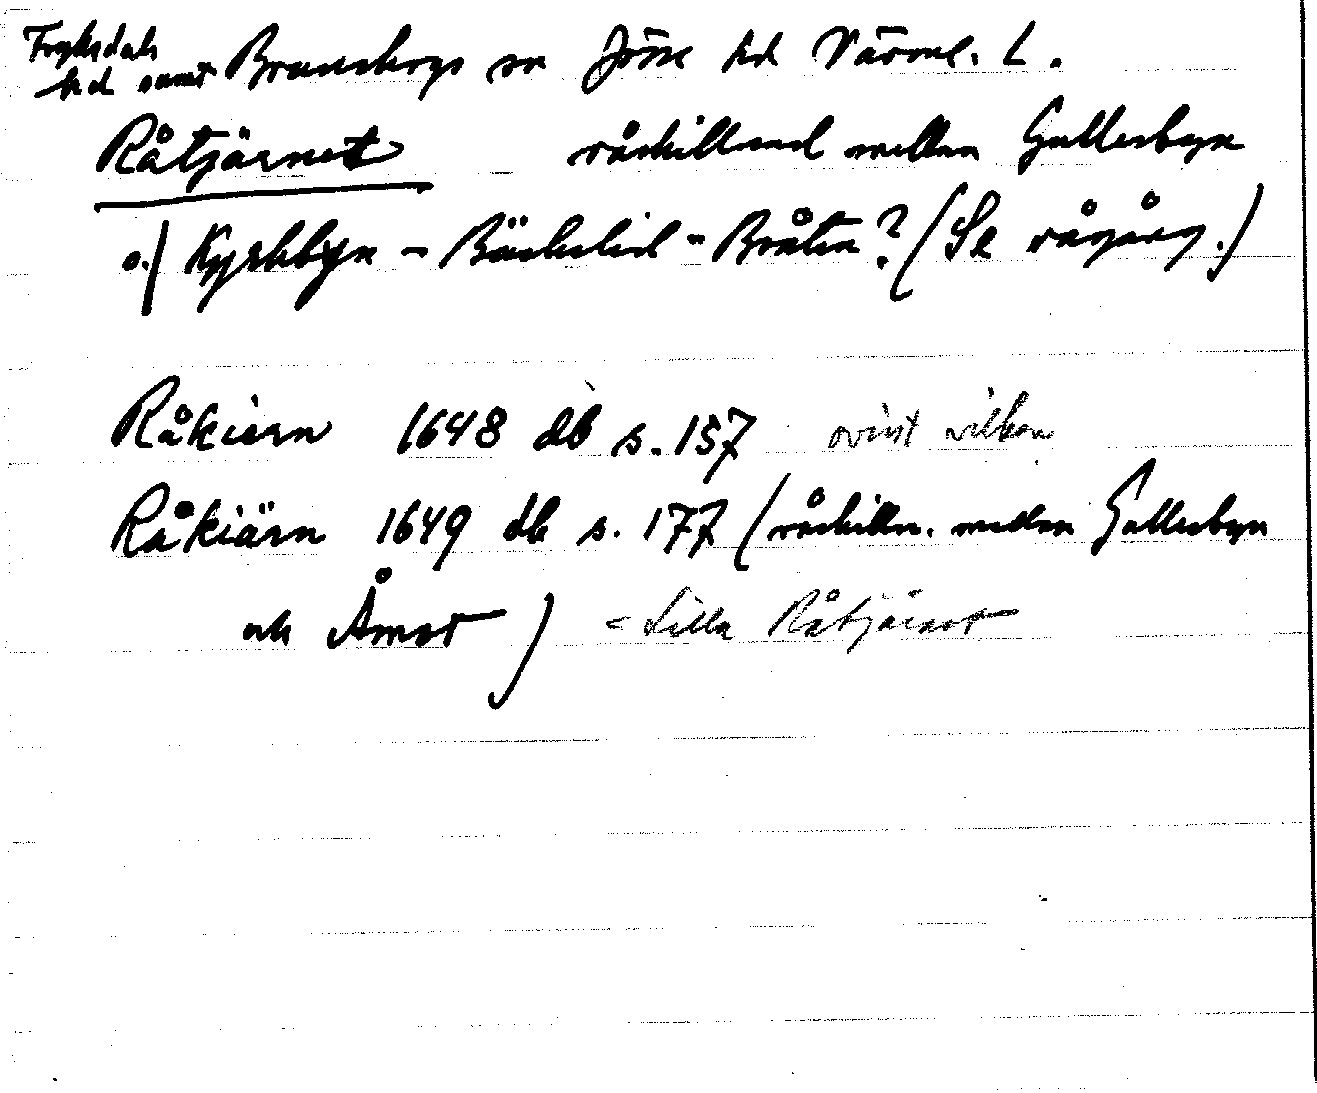 Fryksdals
hd samt Brunskogs sn Jösse hd Värml. L.
Råtjärnet råskillnad mellan Gullerbyn
o.) Kyrkbyn - Bäckelid - Bråten? (Se rågång.)
Råkiern 1648 db s. 157 ovisst vilken
Råkiärn 1649 db s. 177 (råskilln. mellan Gullerbyn
och Åmot) = Lilla Råtjärnet